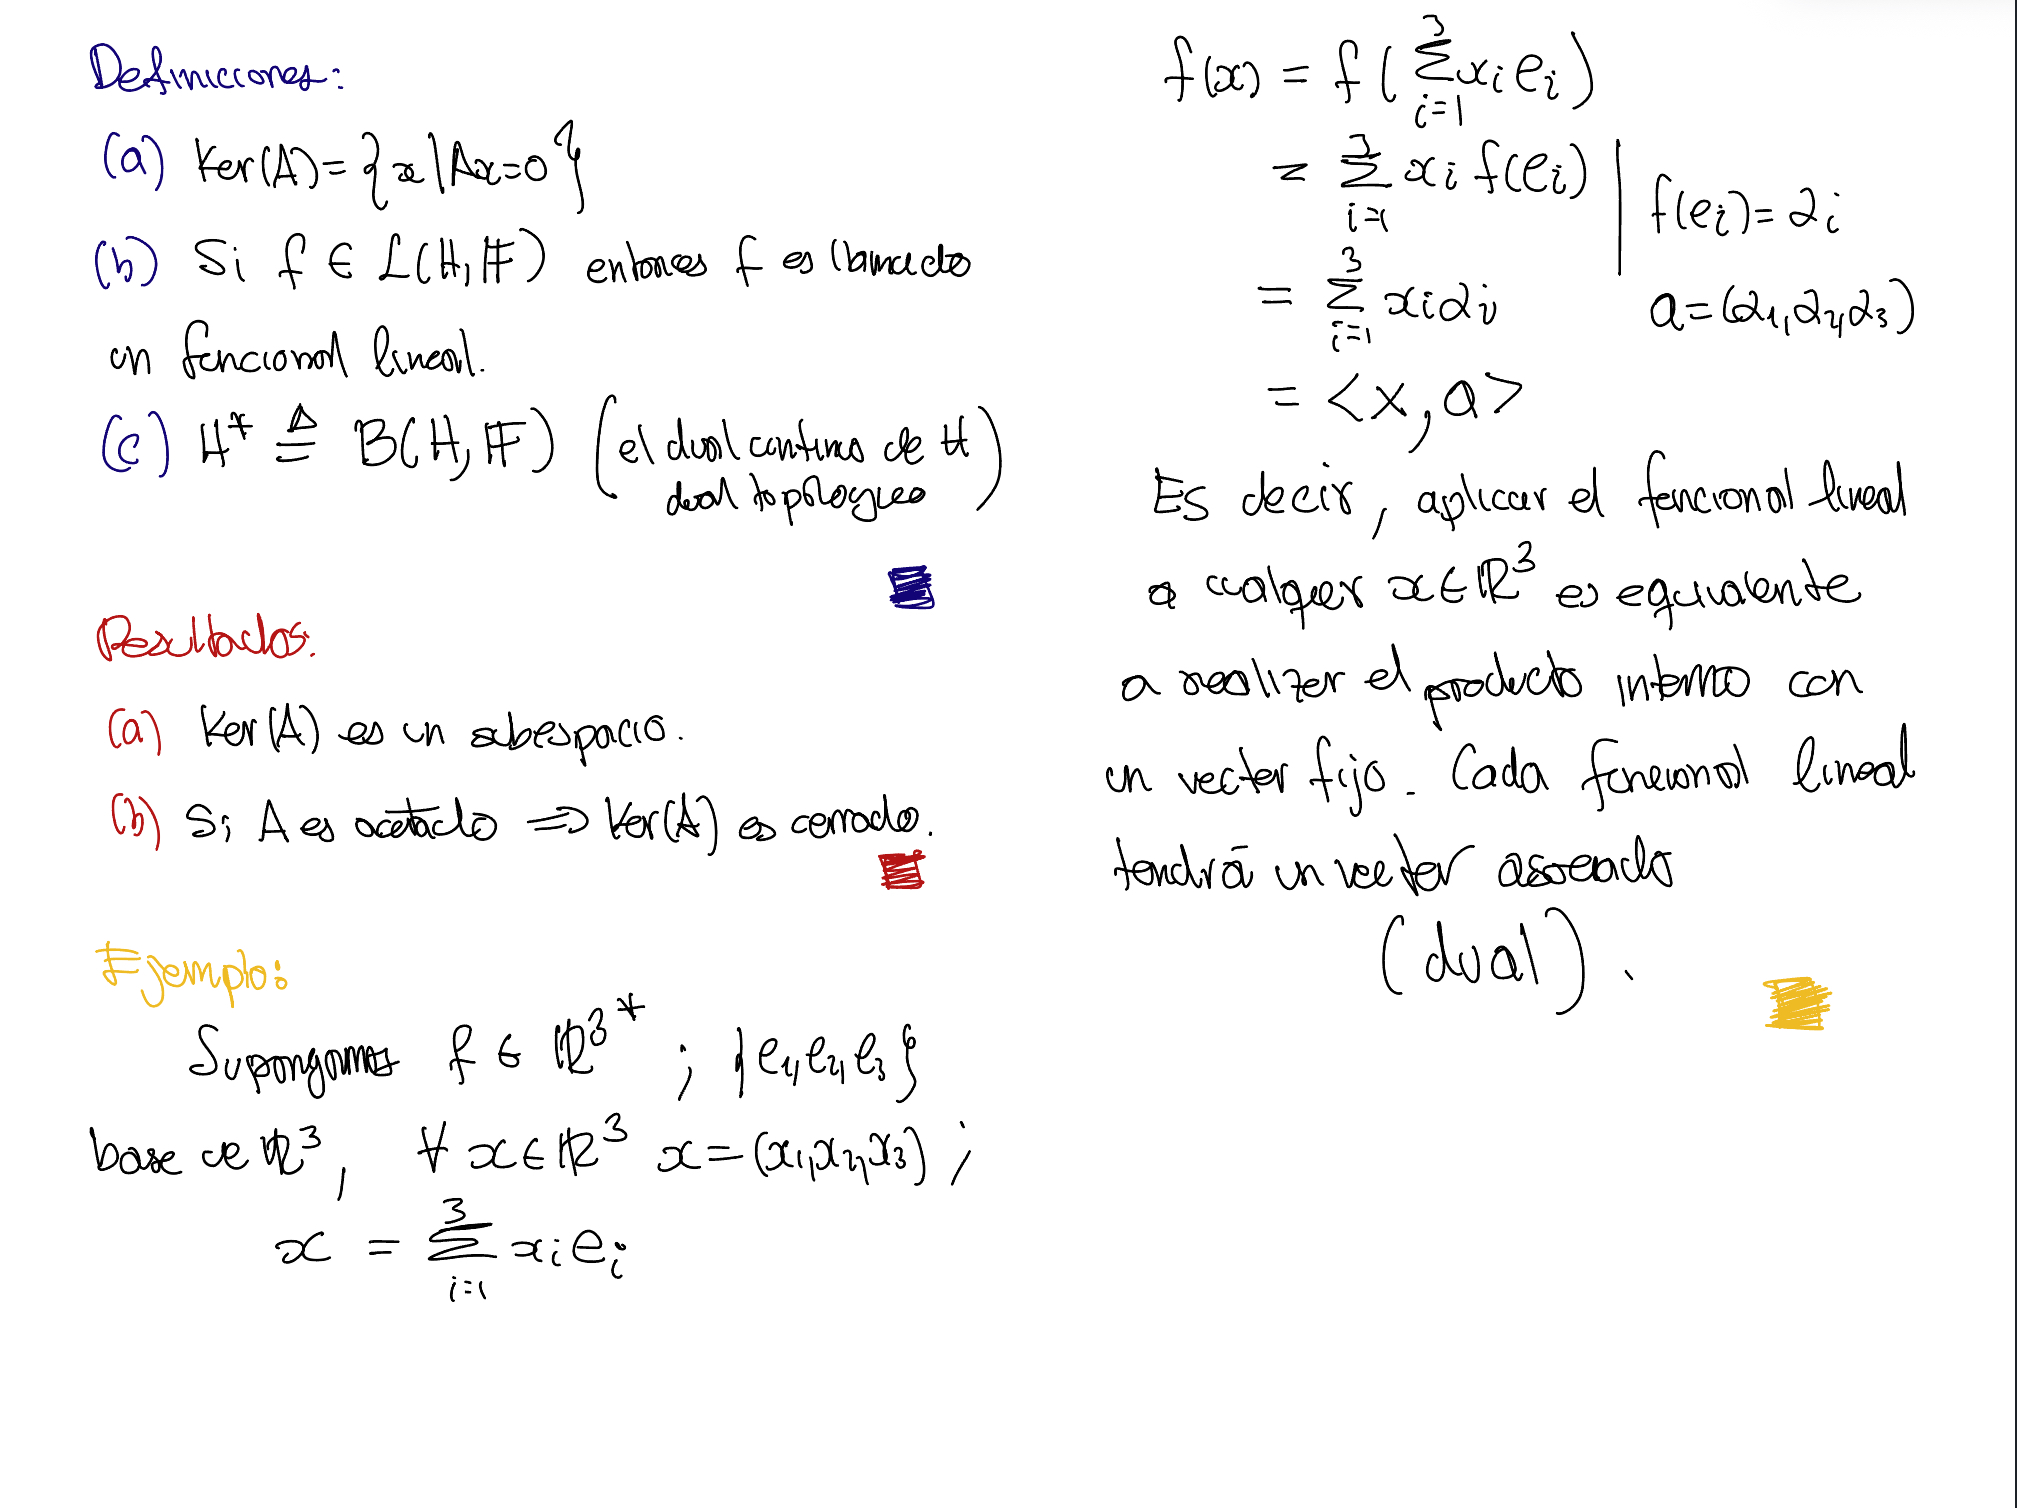 Definiciones:
(a) Ker(A)={x|Ax=0}
(b) Si f ∈ L(H,𝔽) entonces f es llamado
un funcional lineal.
(c) H* ≜ B(H,𝔽) (el dual continuo de H
dual topologico)
Resultados:
(a) Ker(A) es un subespacio.
(b) Si A es acotado ⇒ Ker(A) es cerrado.
Ejemplo:
Supongamos f ∈ ℝ³* ; {e₁,e₂,e₃}
base de ℝ³, ∀ x∈ℝ³ x=(x₁,x₂,x₃) ;
x = ∑_{i=1}^{3} xᵢeᵢ
f(x) = f(∑_{i=1}^{3} xᵢeᵢ)
= ∑_{i=1}^{3} xᵢ f(eᵢ) | f(eᵢ)=αᵢ
= ∑_{i=1}^{3} xᵢαᵢ a=(α₁,α₂,α₃)
= <x,a>
Es decir, aplicar el funcional lineal
a cualquier x∈ℝ³ es equivalente
a realizar el producto interno con
un vector fijo. Cada funcional lineal
tendrá un vector asociado
(dual).